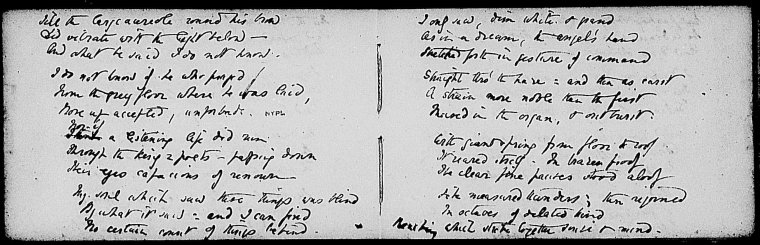 Till the large aureole round his brow
Did vibrate with the light below –
And what he said I do not know.
I do not know if he who prayed
From the grey floor where he was laid,
Rose up accepted, unforbade. NYPL
Nor if a listening life did run
Through the king-poets – passing down
Their eyes capacious of renown –
My soul which saw these things was blind
By what it saw = and I can find
No certain count of things behind.
I only saw, dim white & grand
As in a dream, the angel's hand
Stretched forth in gesture of command
Straight thro' the haze = and then as erst
A strain more noble than the first
Mused in the organ, & outburst.
With giant spring from floor to roof
It reared itself –
clear fine pauses stood aloof
Like measured thunders; then rejoined
In octaves of kind
which together sense & mind.